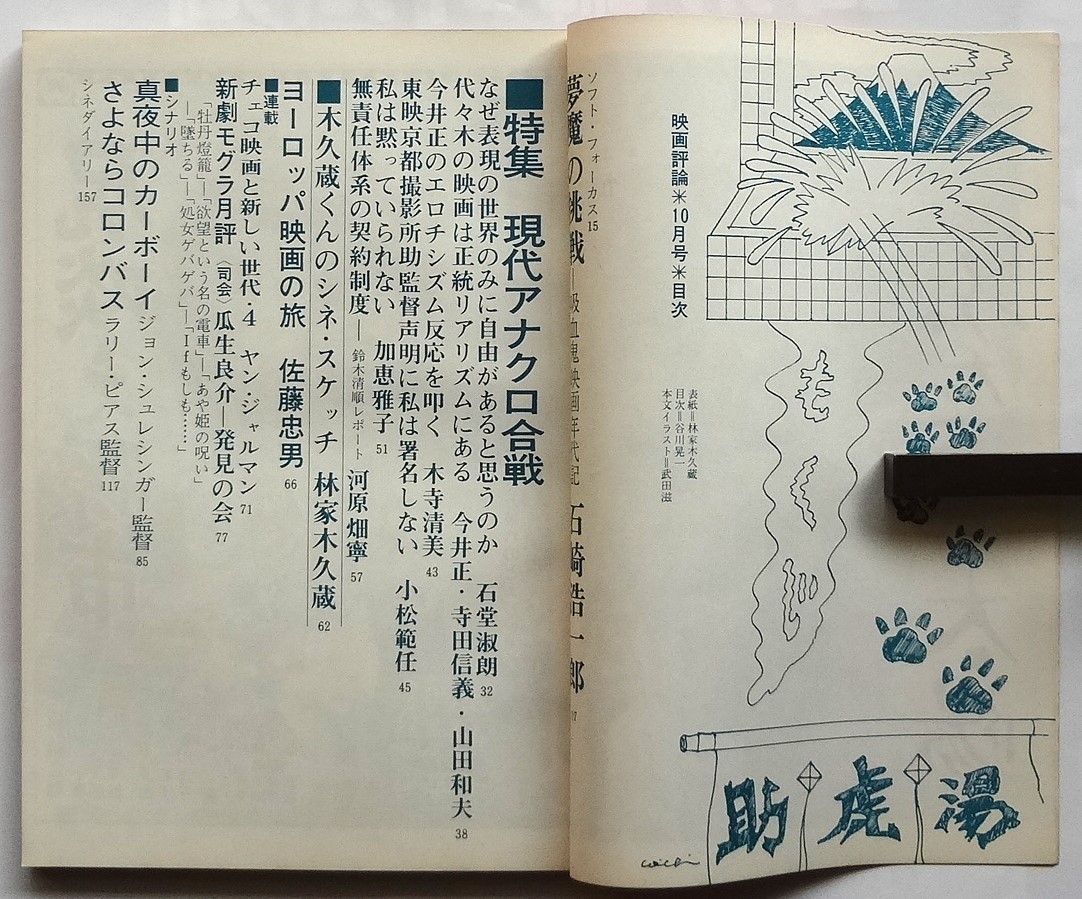 映画評論＊10月号＊目次
表紙＝林家木久蔵
目次＝谷川晃一
本文イラスト＝武田滋
助虎湯
ソフト・フォーカス 15
夢魔の挑戦―吸血鬼映画年代記 石崎浩一郎 17
■特集 現代アナクロ合戦
なぜ表現の世界のみに自由があると思うのか 石堂淑朗 32
代々木の映画は正統リアリズムにある 今井正・寺田信義・山田和夫 38
今井正のエロチシズム反応を叩く 木寺清美 43
東映京都撮影所助監督声明に私は署名しない 小松範任 45
私は黙っていられない 加恵雅子 51
無責任体系の契約制度―鈴木清順レポート 河原畑寧 57
■木久蔵くんのシネ・スケッチ 林家木久蔵 62
ヨーロッパ映画の旅 佐藤忠男 66
■連載
チェコ映画と新しい世代・4 ヤン・ジャルマン 71
新劇モグラ月評〈司会〉瓜生良介―発見の会 77
「牡丹燈籠」―「欲望という名の電車」―「あや姫の呪い」
―「墜ちる」―「処女ゲバゲバ」―「Ifもしも……」
■シナリオ
真夜中のカーボーイ ジョン・シュレシンガー監督 85
さよならコロンバス ラリー・ピアス監督 117
シネダイアリー 157